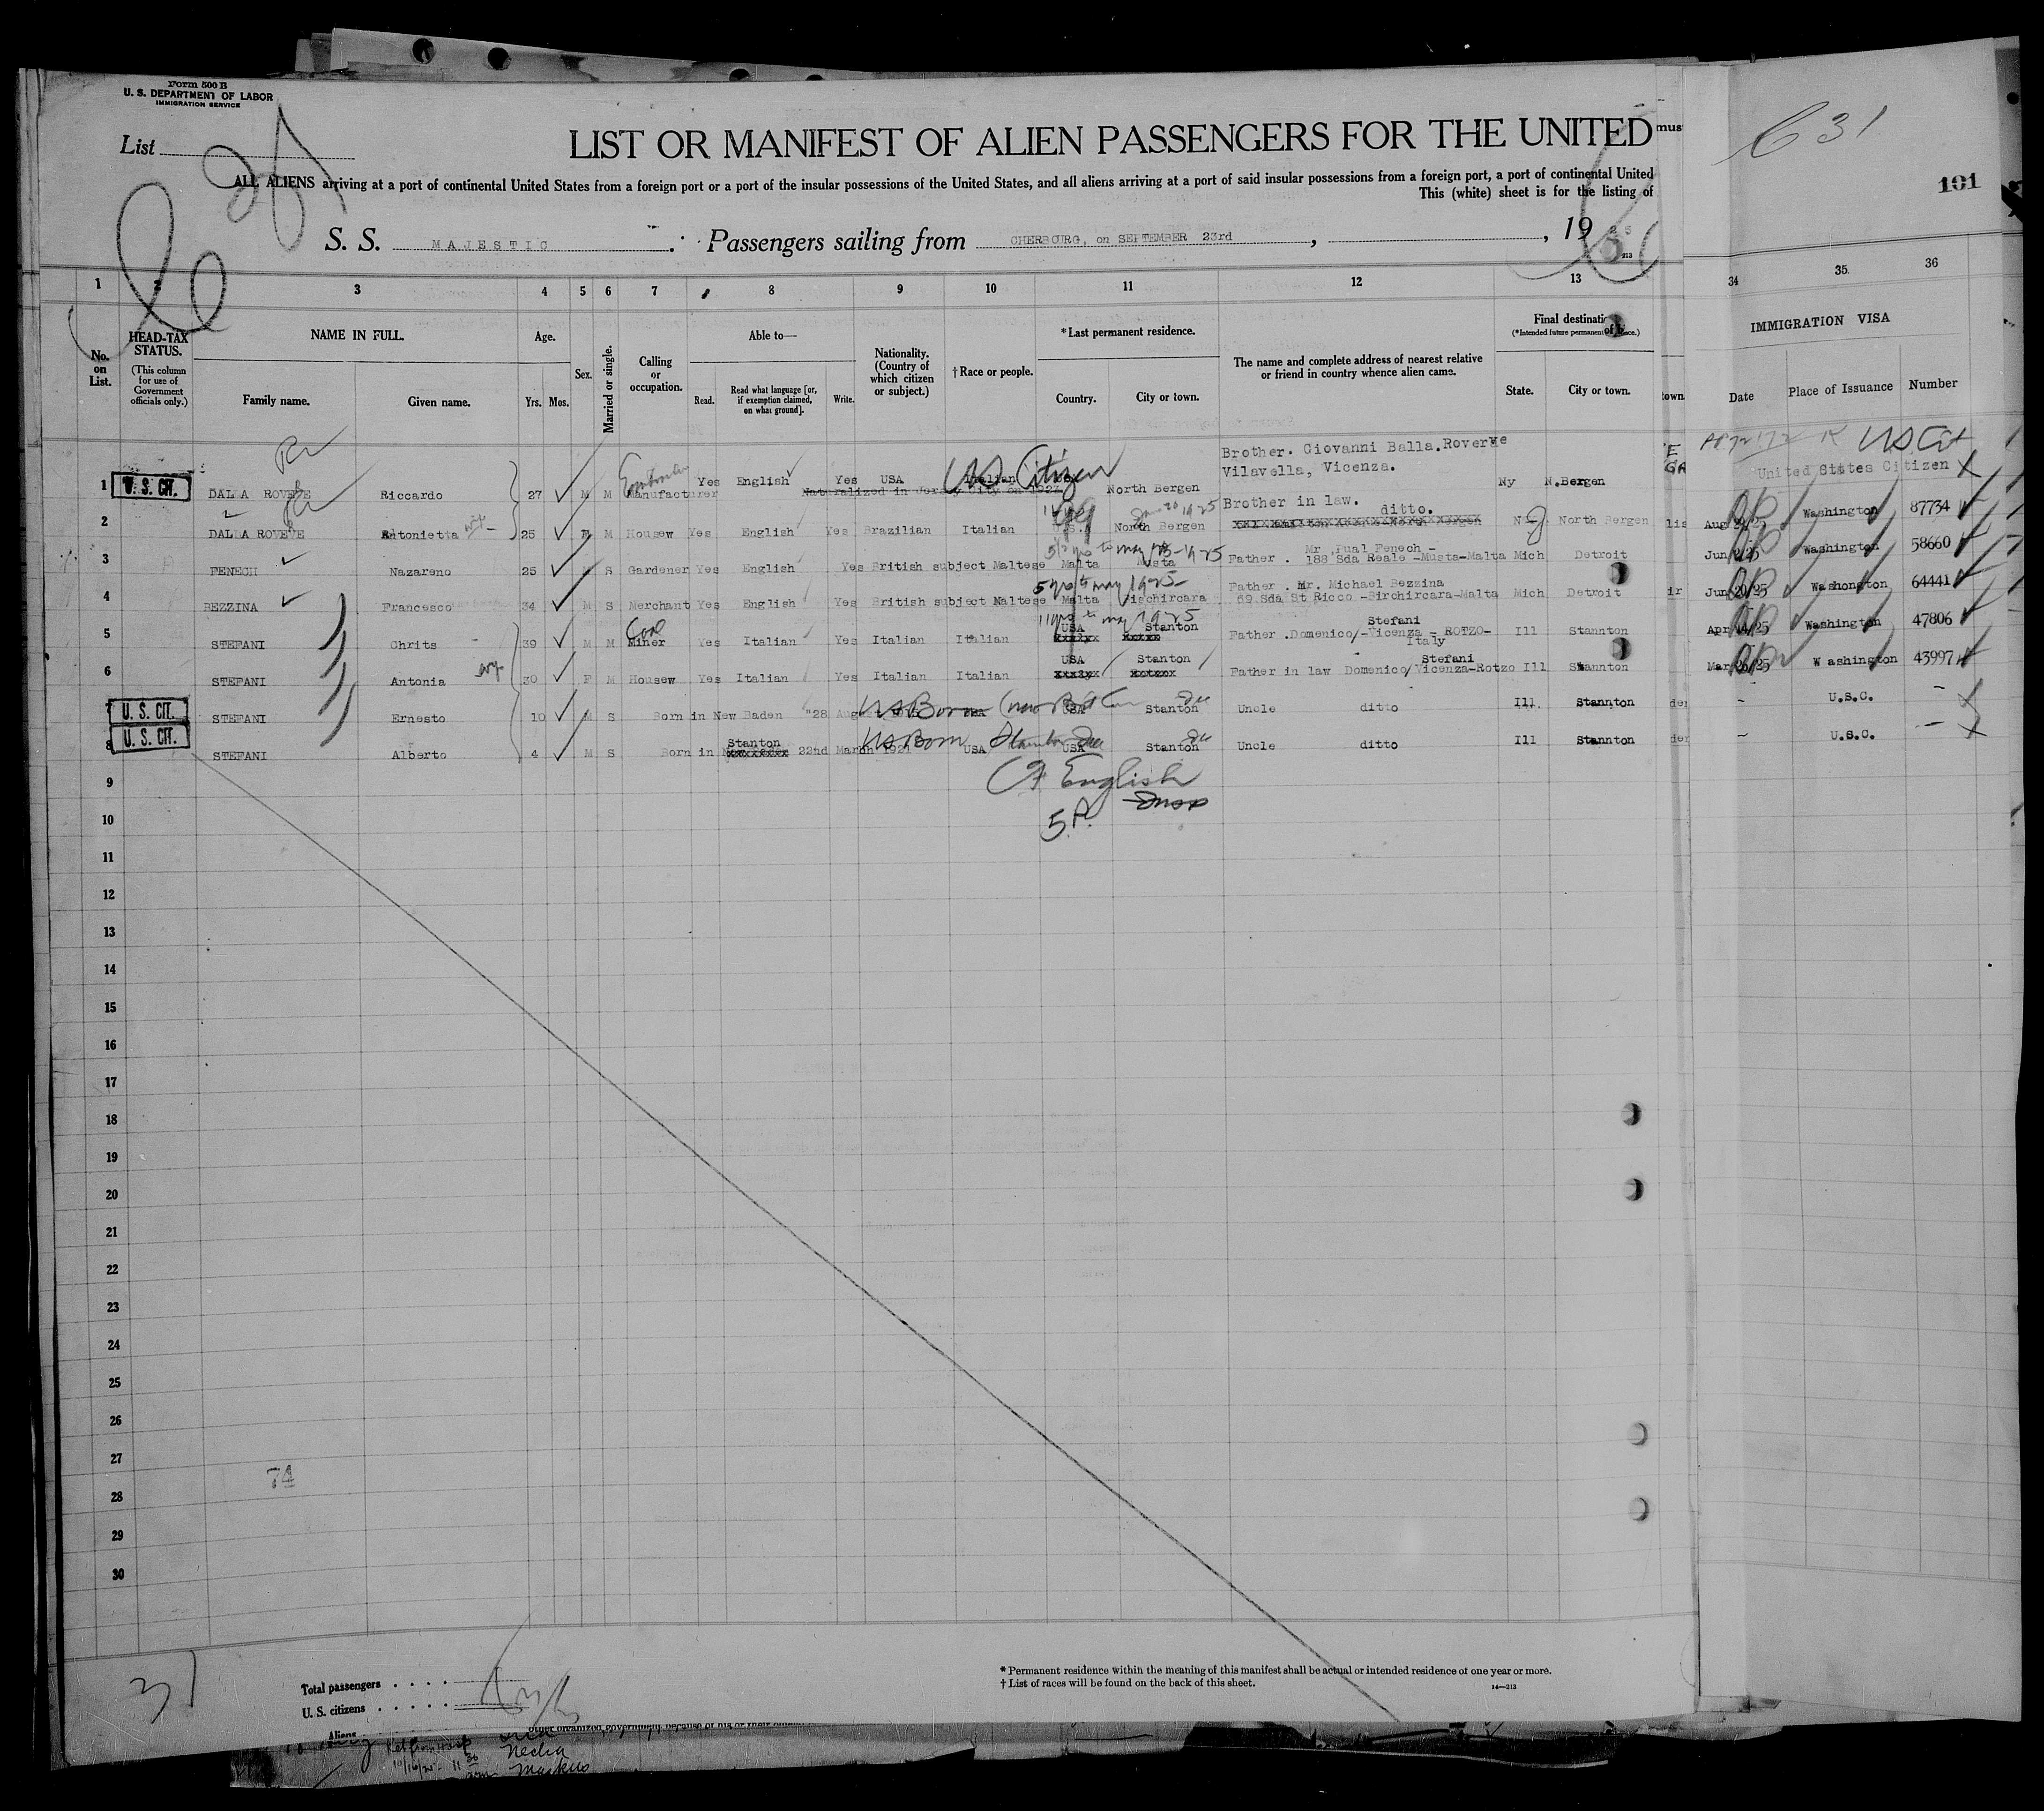 Form 500 B
U. S. DEPARTMENT OF LABOR
IMMIGRATION SERVICE
List
LIST OR MANIFEST OF ALIEN PASSENGERS FOR THE UNITED
mus
631
101
ALL ALIENS arriving at a port of continental United States from a foreign port or a port of the insular possessions of the United States, and all aliens arriving at a port of said insular possessions from a foreign port, a port of continental United
This (white) sheet is for the listing of
S. S. MAJESTIC Passengers sailing from CHERBOURG, on SEPTEMBER 23rd, 19
1 2 3 4 5 6 7 8 9 10 11 12 13 34 35 36
No. on List.
HEAD-TAX STATUS.
(This column for use of Government officials only.)
NAME IN FULL.
Family name. Given name.
Age.
Yrs. Mos.
Sex.
Married or single.
Calling or occupation.
Able to—
Read. Read what language [or, if exemption claimed, on what ground]. Write.
Nationality. (Country of which citizen or subject.)
† Race or people.
* Last permanent residence.
Country. City or town.
The name and complete address of nearest relative or friend in country whence alien came.
Final destination
(*Intended future permanent
State. City or town.
town
IMMIGRATION VISA
Date Place of Issuance Number
1 U. S. CIT. DALLA ROVERE Riccardo 27 M M Manufacturer Yes English Yes USA Italian US Citizen North Bergen Brother. Giovanni Balla.Rovere Vilavella, Vicenza. Ny N.Bergen US Cit United States Citizen
Naturalized in Jersey City on
2 DALLA ROVERE Antonietta wife 25 F M Housew Yes English Yes Brazilian Italian U.S.A North Bergen Brother in law. ditto. N J North Bergen lis Washington 87734
3 FENECH Nazareno 25 S Gardener Yes English Yes British subject Maltese Malta Musta Father . Mr Pual Fenech - 188 Sda Reale -Musta-Malta Mich Detroit Washington 58660
4 BEZZINA Francesco 34 M S Merchant Yes English Yes British subject Maltese Malta Father . Mr. Michael Bezzina 69 Sda St Ricco -Birchircara-Malta Mich Detroit ir Washongton 64441
5 STEFANI Chrits 39 M M Coal Miner Yes Italian Yes Italian Italian USA Stanton Father .Domenico/-Vicenza - ROTZO- Stefani Italy Ill Stannton Washington 47806
6 STEFANI Antonia wife 30 F M Housew Yes Italian Yes Italian Italian USA Stanton Father in law Domenico/ Stefani Vicenza-Rotzo Ill Stannton Washington 43997
7 U. S. CIT. STEFANI Ernesto 10 M S Born in New Baden 28 Aug US Born USA Stanton Uncle ditto Ill Stannton der - U.S.C. -
8 U. S. CIT. STEFANI Alberto 4 M S Born in Stanton 22nd March US Born USA USA Stanton Uncle ditto Ill Stannton der - U.S.C. -
9 English
10 5
11
12
13
14
15
16
17
18
19
20
21
22
23
24
25
26
27
74
28
29
30
Total passengers . . . .
U. S. citizens . . . . .
Aliens
* Permanent residence within the meaning of this manifest shall be actual or intended residence of one year or more.
† List of races will be found on the back of this sheet.
14—213
Necha
Markus